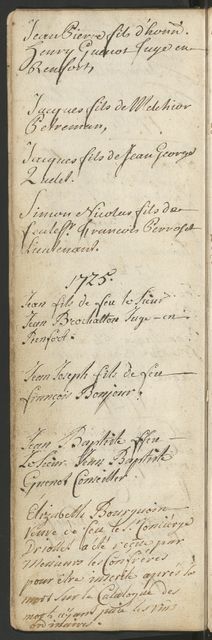 Jean Pierre fils d'honn.
Henry Guenot Juge en
Renfort,
Jacques fils de Melchior
Petreman,
Jacques fils de Jean George
Quelet.
Simon Nicolas fils de
François Perrost
Lieutenant.
1725.
Jean fils de feu le Sieur
Jean Brochatton Juge en
Renfort.
Jean Joseph fils de feu
François Bonjour.
Jean Baptiste feu
Le Sieur Jean Baptiste
Guenot Conseiller.
Elizabeth Bourquoin
Veuve de feu le Concierge
a été reçue par
Messieurs les Confrères
pour être inserée après la
mort sur le Catalogue des
mort ayant paié les
ordinaires.